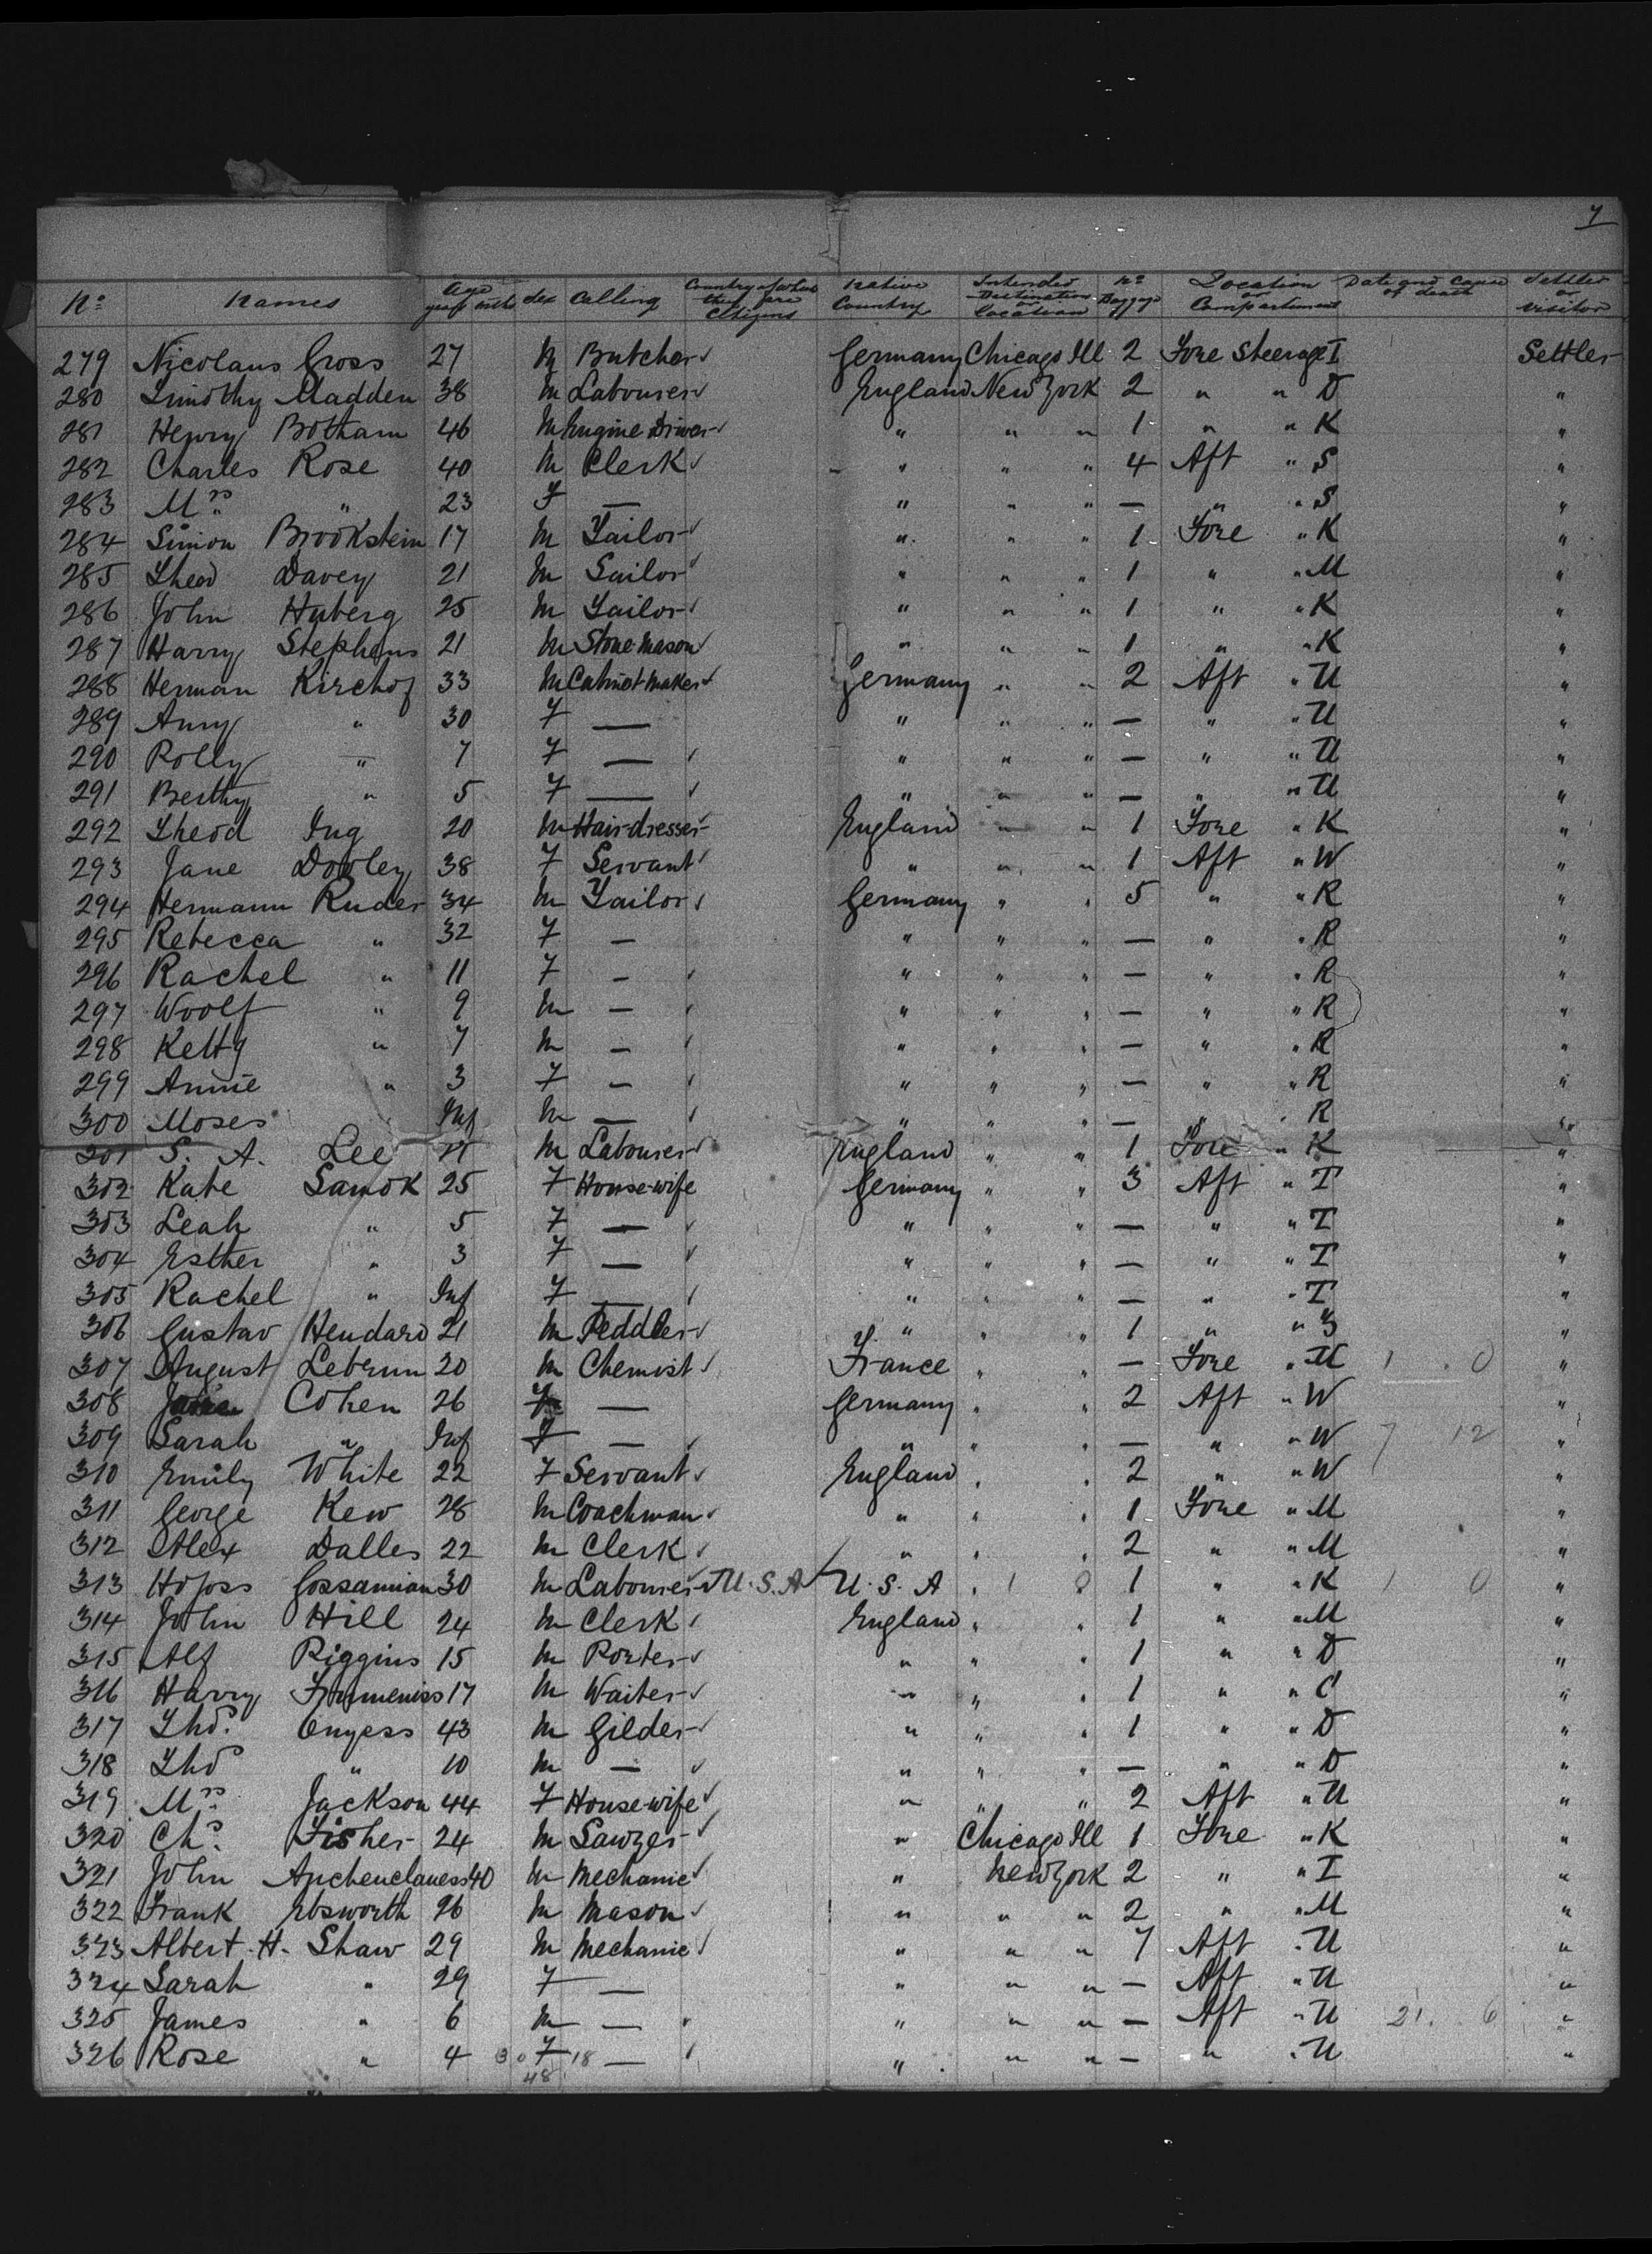 7
No. Names Age years mths Sex Calling Country of which they are Citizens Native Country Intended Destination or Location No. Baggage Location or Compartment Date and Cause of death Settler or Visitor
279 Nicolaus Gross 27 M Butcher Germany Chicago Ill 2 Fore Steerage I Settler
280 Timothy Madden 38 M Labourer England New York 2 " " D "
281 Henry Botham 46 M Engine Driver " " " 1 " " K "
282 Charles Rose 40 M Clerk " " " 4 Aft " S "
283 Mrs " 23 F — " " " — " " S "
284 Simon Brookstein 17 M Tailor " " " 1 Fore " K "
285 Theod Davey 21 M Sailor " " " 1 " " M "
286 John Huberg 25 M Tailor " " " 1 " " K "
287 Harry Stephens 21 M Stone Mason " " " 1 " " K "
288 Herman Kirchof 33 M Cabinet Maker Germany " " 2 Aft " U "
289 Amy " 30 F — " " " — " " U "
290 Polly " 7 F — " " " — " " U "
291 Berthy " 5 F — " " " — " " U "
292 Theod Ing 20 M Hair-dresser England " " 1 Fore " K "
293 Jane Dooley 38 F Servant " " " 1 Aft " W "
294 Hermann Ruder 34 M Tailor Germany " " 5 " " R "
295 Rebecca " 32 F — " " " — " " R "
296 Rachel " 11 F — " " " — " " R "
297 Woolf " 9 M — " " " — " " R "
298 Ketty " 7 M — " " " — " " R "
299 Annie " 3 F — " " " — " " R "
300 Moses Inf M — " " " — " " R "
301 S. A. Lee 21 M Labourer England " " 1 Fore " K "
302 Kate Samok 25 F House-wife Germany " " 3 Aft " T "
303 Leah " 5 F — " " " — " " T "
304 Esther " 3 F — " " " — " " T "
305 Rachel " Inf F — " " " — " " T "
306 Gustav Hendard 21 M Peddler " " " 1 " "
307 August Lebrun 20 M Chemist France " " — Fore " M 1 . 0 "
308 Cohen 26 F — Germany " " 2 Aft " W "
309 Sarah " Inf F — " " " — " " W 7 12 "
310 Emily White 22 F Servant England " " 2 " " W "
311 George Kew 28 M Coachman " " " 1 Fore " M "
312 Alex Dalles 22 M Clerk " " " 2 " " M "
313 Hojoss Gossamian 30 M Labourer U.S.A U.S.A " 1 0 1 " " K 1 0 "
314 John Hill 24 M Clerk England " " 1 " " M "
315 Alf Riggins 15 M Porter " " " 1 " " D "
316 Harry 17 M Waiter " " " 1 " " C "
317 Thos. Engess 43 M Gilder " " " 1 " " D "
318 Thos " 10 M — " " " — " " D "
319 Mrs. Jackson 44 F House-wife " " " 2 Aft " U "
320 Chs. Fisher 24 M Sawyer " Chicago Ill 1 Fore " K "
321 John Auchenclauess 40 M Mechanic " New York 2 " " I "
322 Frank Ebsworth 26 M Mason " " " 2 " " M "
323 Albert. H. Shaw 29 M Mechanic " " " 7 Aft " U "
324 Sarah " 29 F — " " " — Aft " U "
325 James " 6 M — " " " — Aft " U 21. 6 "
326 Rose " 4 30 F 18 — " " " — " " U "
48